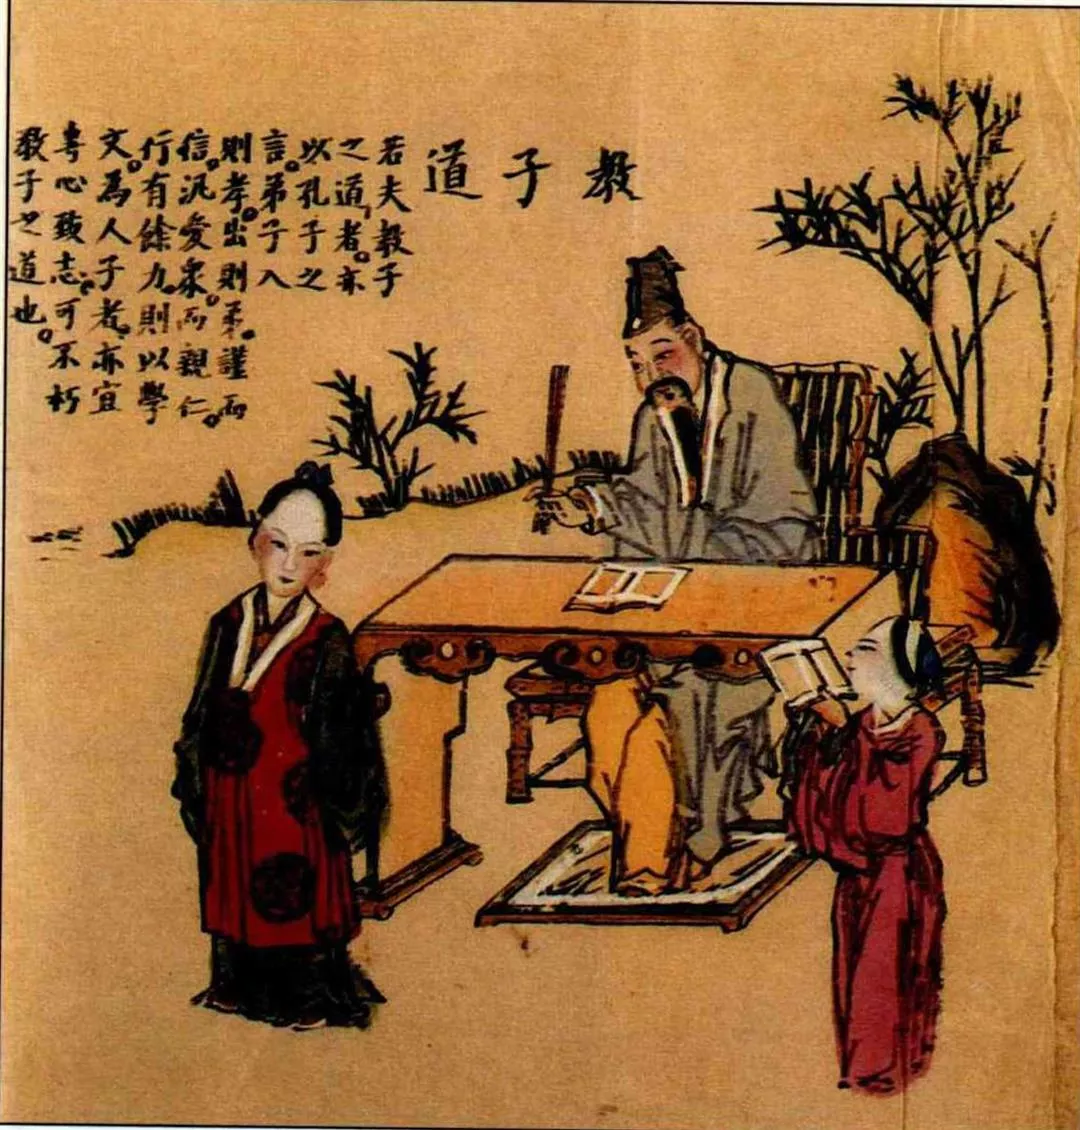 教子道
若夫教子
之道者。亦
以孔子之
言。弟子入
則孝。出則弟。謹而
信。汎愛衆。而親仁。
行有餘力。則以學
文。為人子者。亦宜
専心致志。可不朽
教子之道也。